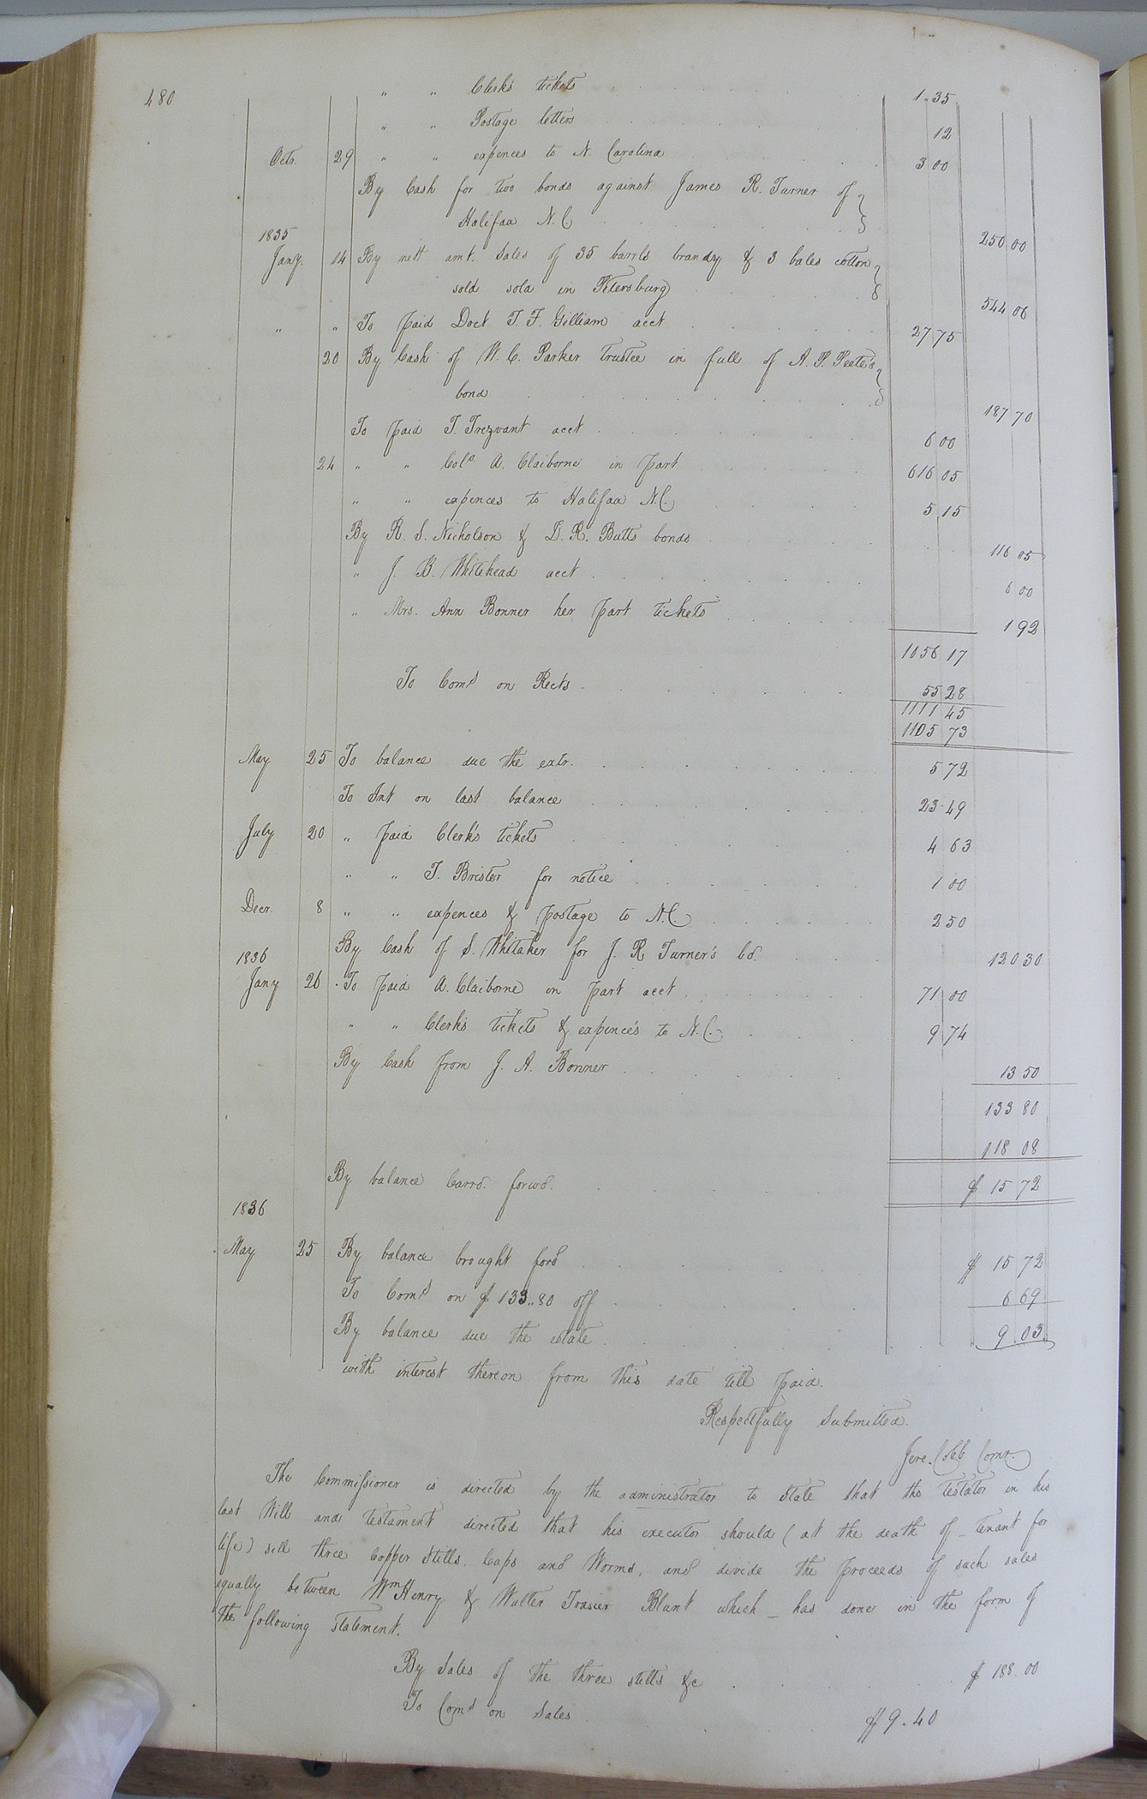 480
" " Clerks tickets 1.35
" " Postage letters 12
Octo. 29 " " expences to N. Carolina 3 00
By Cash for two bonds against James R. Turner of
Halifax N.C. 250 00
1835
Jany. 14 By nett amt. Sales of 35 barrls brandy & 3 bales cotton
sold sola in Petersburg 544 06
" " To paid Doct T. F. Gilliam acct 27 75
20 By Cash of W. C. Parker Trustee in full of A. P. Peete's
bond 187 70
To paid T. Trezvant acct 6 00
24 " " Colo. A. Claiborne in part 616 05
" " expences to Halifax N.C. 5 15
By R. S. Nicholson & D. R. Butts bonds 116 05
" J. B. Whitehead acct 6 00
" Mrs. Ann Bonner her part tickets 1 92
1056 17
To Comd on Rects 55 28
1111 45
1105 73
May 25 To balance due the exto. 5 72
To Int on last balance 23.49
July 20 " paid Clerks tickets 4 63
" " T. Brister for notice 1 00
Decr. 8 " " expences & postage to N.C. 2 50
By Cash of S. Whitaker for J. R Turner's bd. 120 30
1836
Jany 26 To paid A. Claiborne in part acct 71 00
" " Clerks tickets & expences to N.C. 9 74
By Cash from J. A. Bonner 13 50
133 80
118 08
By balance Carrd. forwd. $ 15 72
1836
May 25 By balance brought ford $ 15 72
To Comd on $ 133..80 off 6 69
By balance due the estate 9.03
with interest thereon from this date till paid.
Respectfully Submitted.
Jere. Cobb Comr.
The Commissioner is directed by the administrator to State that the testator in his
last Will and testament directed that his executor should (at the death of _ tenant for
life) sell three Copper Stills. Caps and Worms, and divide the proceeds of such sales
equally between Wm Henry & Walter Trasier Blunt which _ has done in the form of
the following Statement.
By Sales of the three stills &c $ 188.00
To Comd on Sales $ 9.40